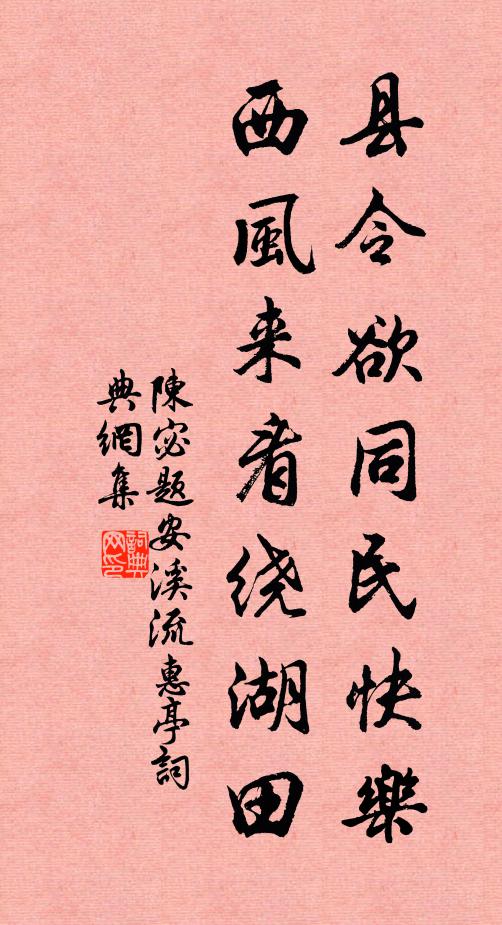 县令欲同民快樂
西風来看绕湖田
陳宓题安溪流惠亭詞
典網集
詞典
网印